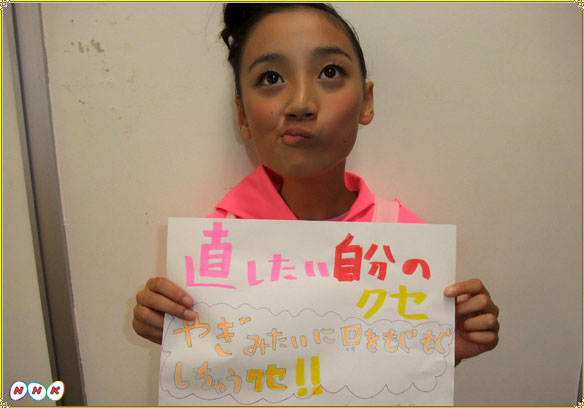 直したい自分の
クセ
やぎみたいに口をもぐもぐ
しちゃうクセ!!
NHK